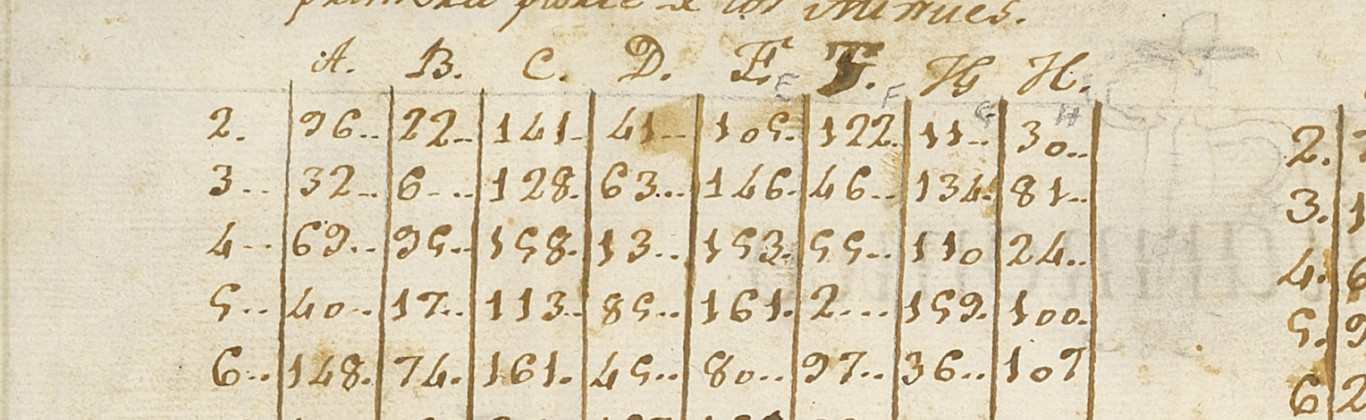 los minues.
A. B. C. D. E. F. G H.
E F G H
2. 96.. 22.. 141. 41.. 105. 122. 11.. 30.. 2.
3.. 32.. 6... 128. 63... 146. 46.. 134. 81.. 3. 1
4.. 69.. 95.. 158. 13... 153. 55.. 110 24.. 4. 6
5.. 40.. 17.. 113.. 85.. 161. 2... 159. 100. 5. 9
6.. 148. 74. 161. 45.. 80.. 97.. 36.. 107 6 2